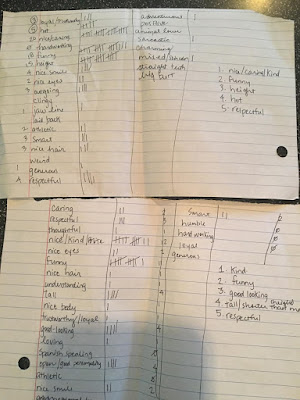 loyal/trustworthy
hot
nice/caring
hardworking
funny
height
nice smile
nice eyes
outgoing
clingy
jaw line
laid back
2 athletic
3 smart
3 nice hair
weird
1 generous
4 respectful
adventurous
positive
animal lover
sarcastic
charming
straight teeth
big butt
1. nice/caring/kind
2. funny
3. height
4. hot
5. respectful
caring
respectful
thoughtful
nice/kind
nice eyes
funny
nice hair
understanding
tall
nice body
trustworthy/loyal
good-looking
loving
Spanish speaking
open/good personality
athletic
nice smile
smart
humble
hard working
loyal
generous
1. Kind
2. funny
3. good looking
4. Tall/shorter than me
5. respectful